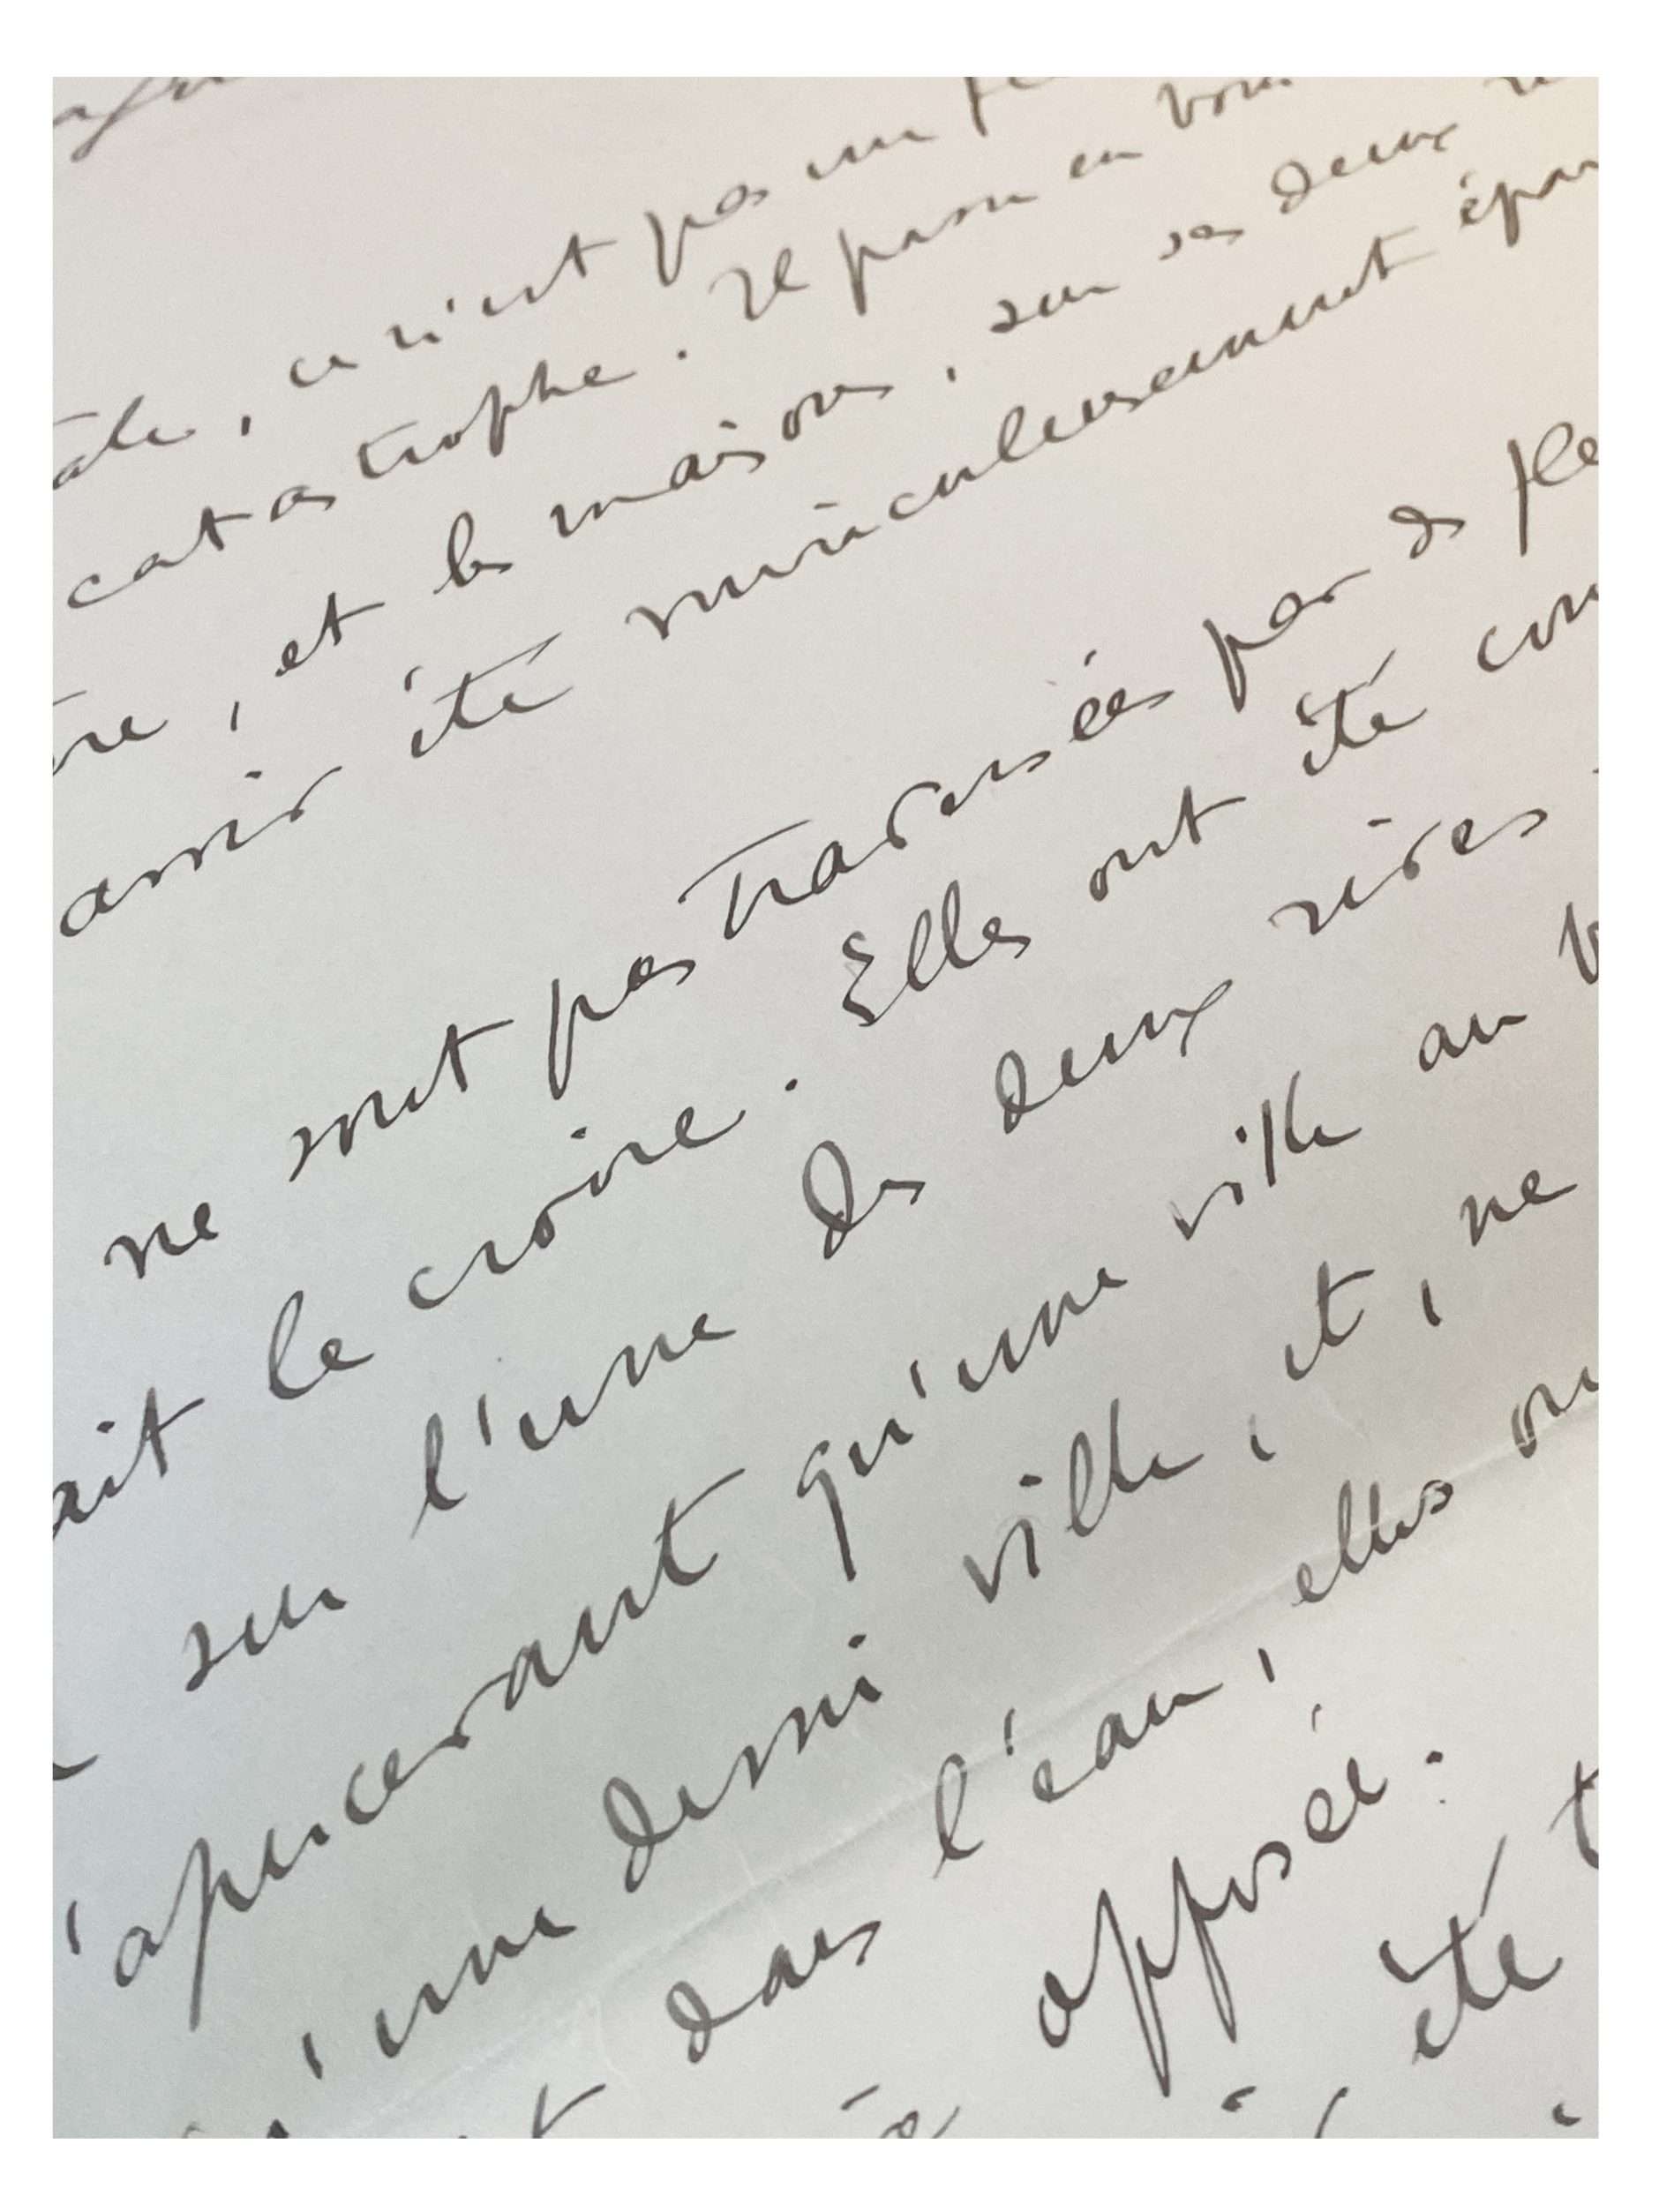 , ce n'est pas un
catastrophe. Il passe en
, et les maisons, sur ses deux
avoir été miraculeusement
ne sont pas traversées par des
le croire. Elles ont été
sur l'une des deux rives
apercevant qu'une ville au
une demi ville, et, ne
dans l'eau, elles
opposée.
été